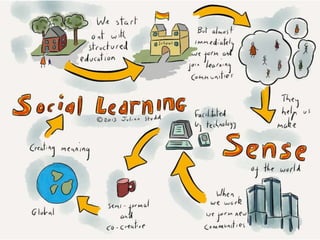 We start
out with
structured
education
School
But almost
immediately
we form and
join learning
communities
They
help us
make
Sense
of the world
When
we work
we form new
communities
Facilitated
by technology
Semi-formal
and
co-creative
Global
Creating meaning
Social Learning
©2013 Julian Stodd